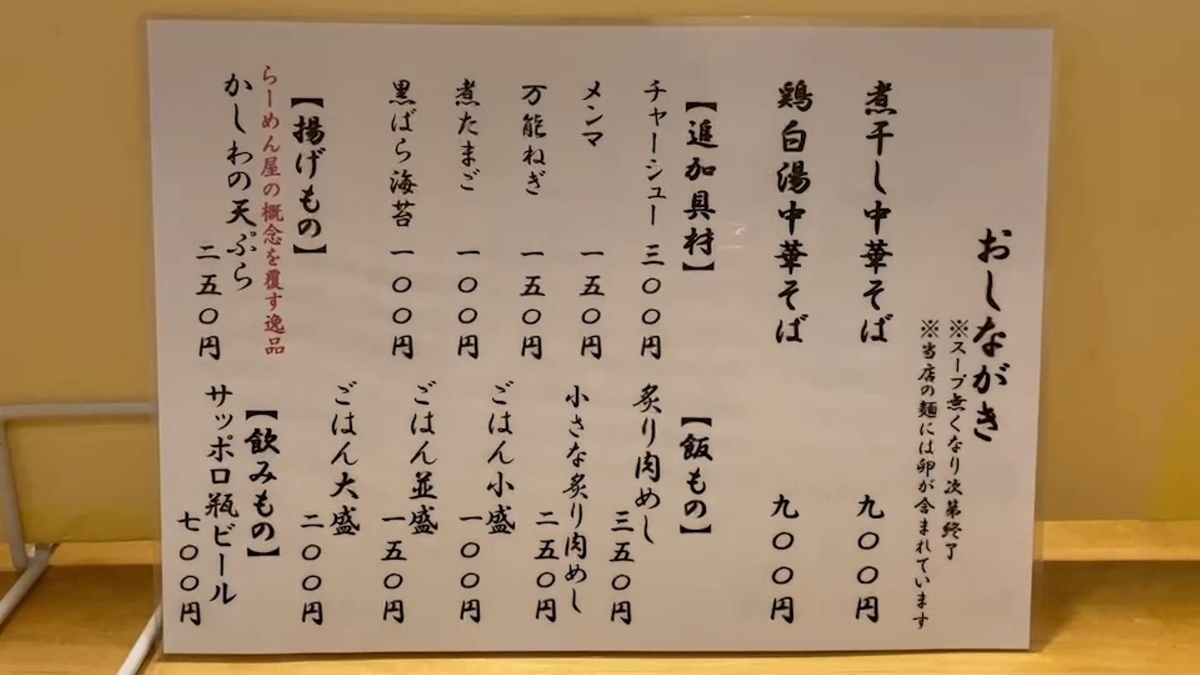 おしながき
※スープ無くなり次第終了
※当店の麺には卵が含まれています
煮干し中華そば 九〇〇円
鶏白湯中華そば 九〇〇円
【追加具材】
チャーシュー 三〇〇円
メンマ 一五〇円
万能ねぎ 一五〇円
煮たまご 一〇〇円
黒ばら海苔 一〇〇円
【飯もの】
炙り肉めし 三五〇円
小さな炙り肉めし 二五〇円
ごはん小盛 一〇〇円
ごはん並盛 一五〇円
ごはん大盛 二〇〇円
【揚げもの】
らーめん屋の概念を覆す逸品
かしわの天ぷら 二五〇円
【飲みもの】
サッポロ瓶ビール 七〇〇円